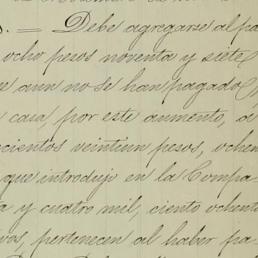 s. = Debe agregarse al pa
ocho pesos noventa y siete
e aun no se han pagado,
casa, por este aumento, a
cientos veintiun pesos, ochen
que introdujo en la Compa
a y cuatro mil, ciento ochent
vos, pertenecen al haber pa